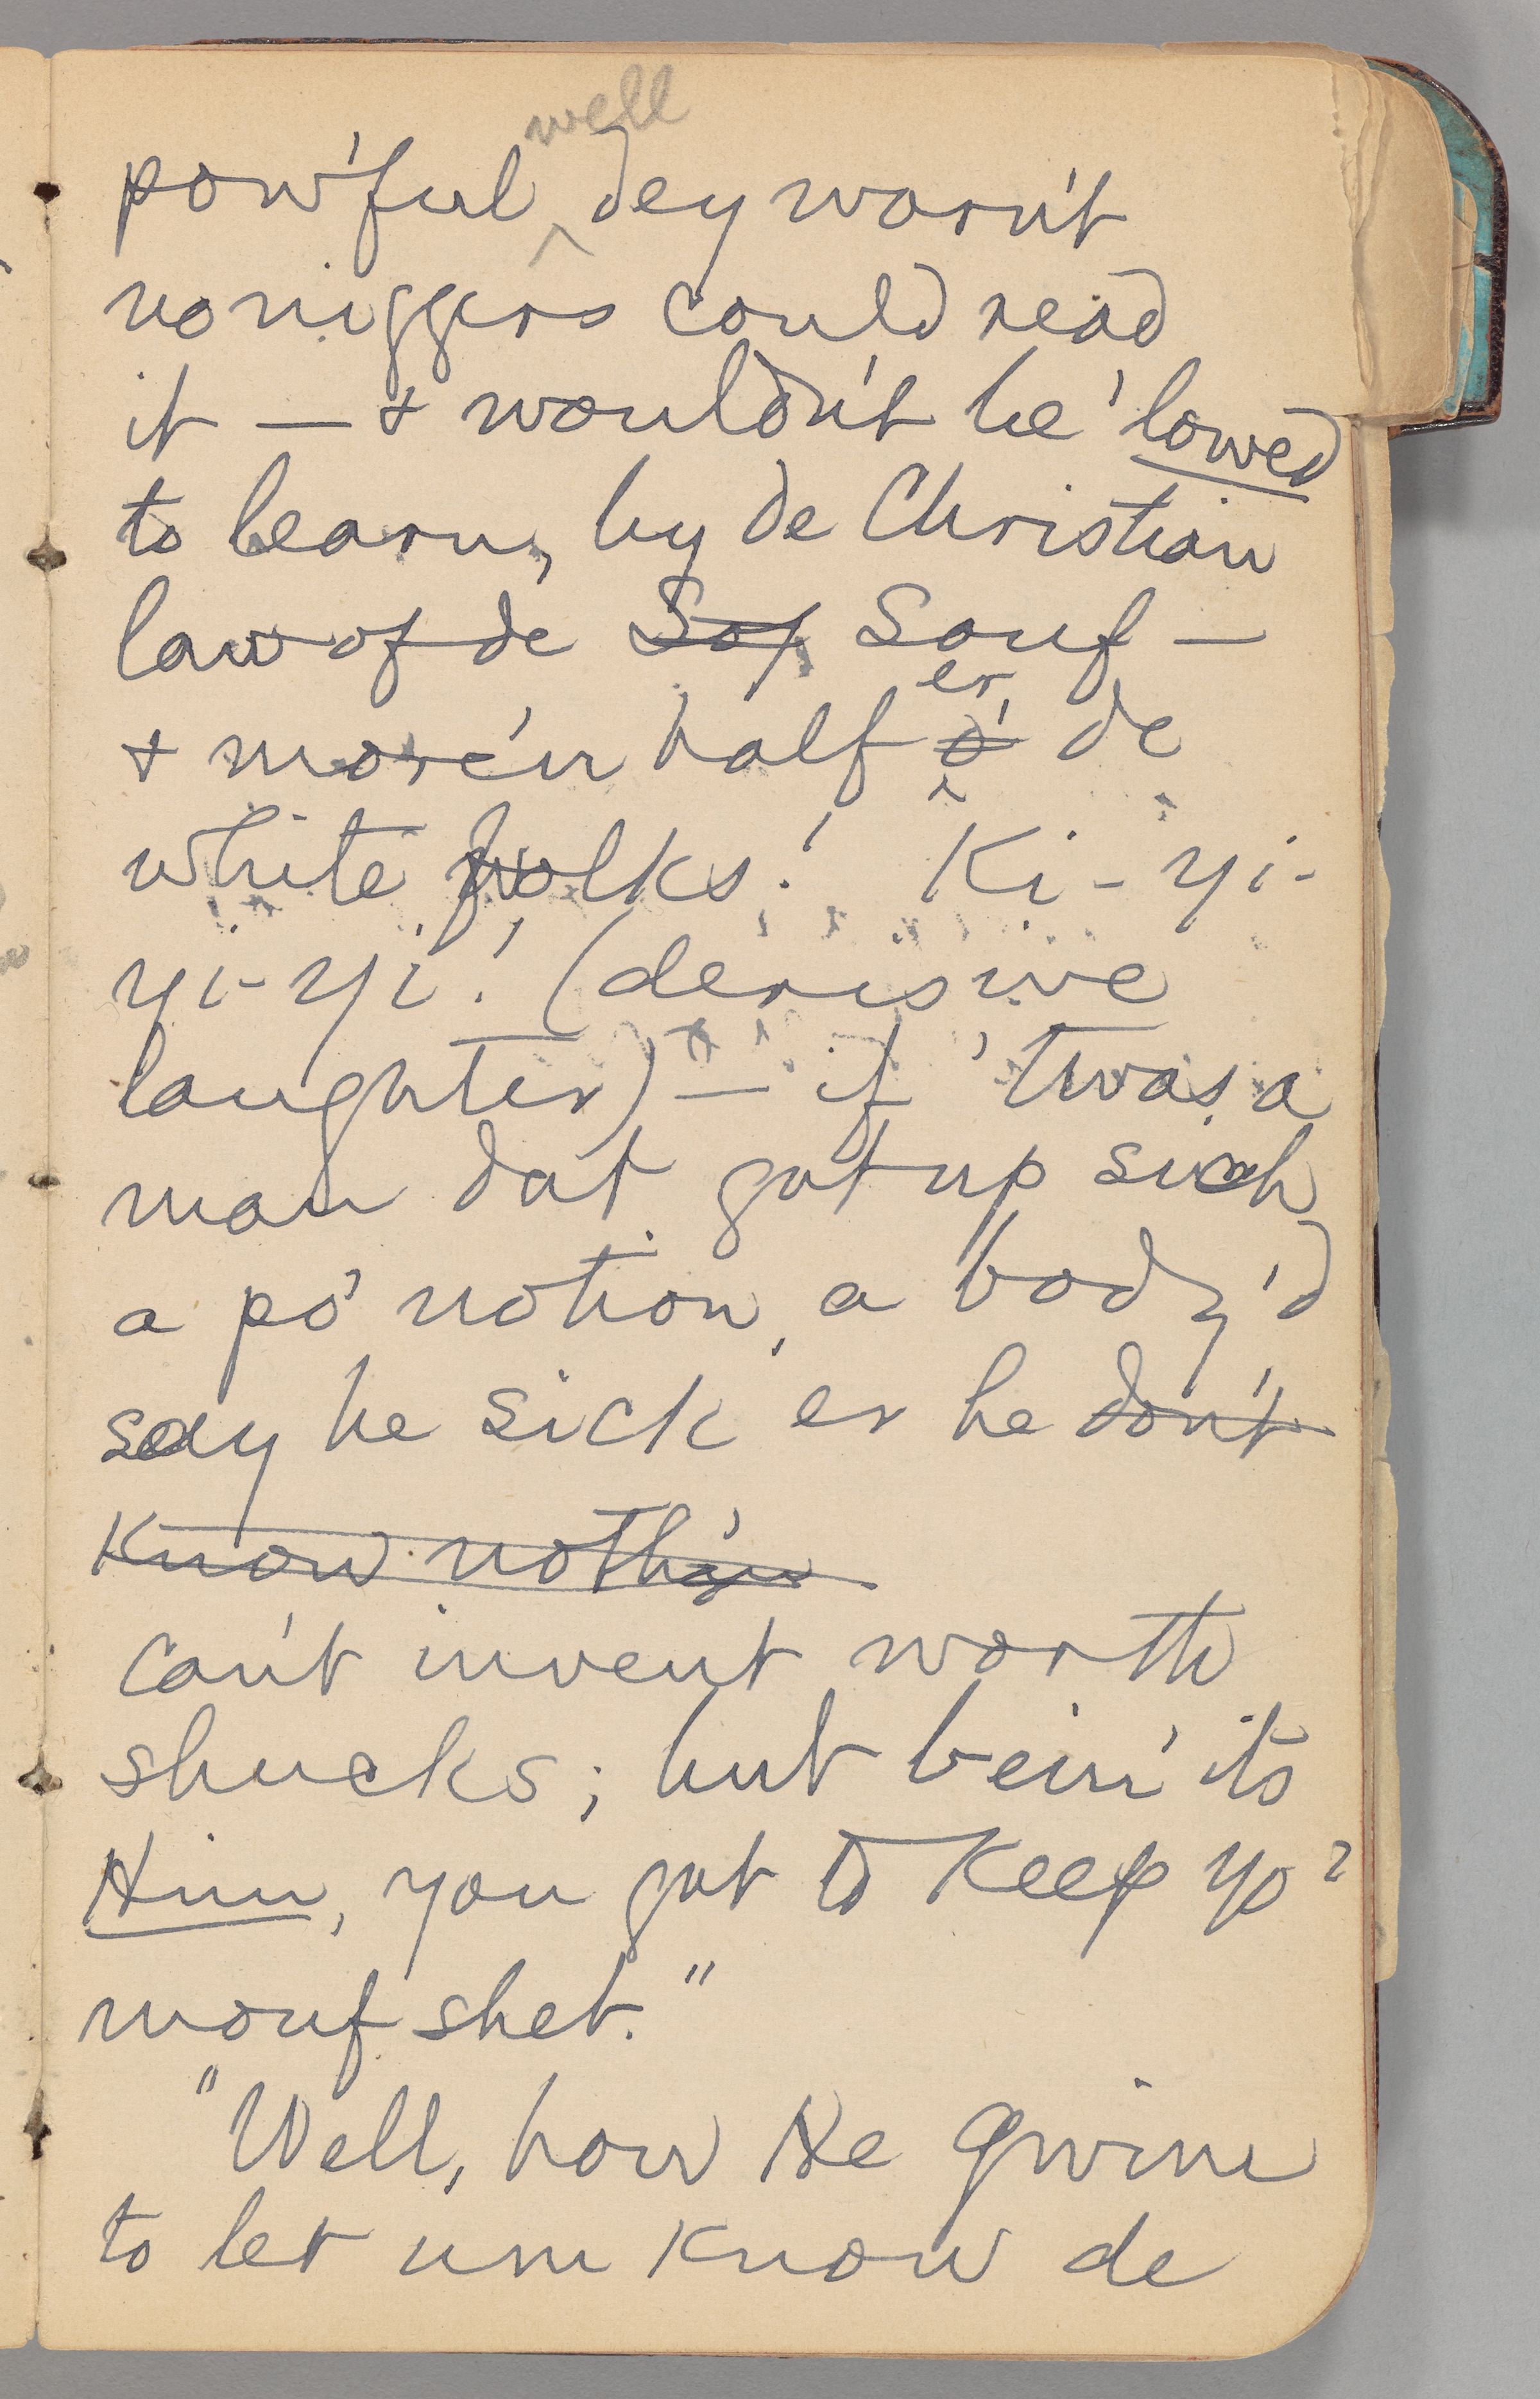 well
pow'ful dey warn't
no niggers could read
it — & wouldn't be 'lowed
to learn, by de Christian
law of de Sof Souf —
er
& more'n half o' de
white folks! Ki-yi-
yi-yi! (derisive
laughter) — if 'twas a
man dat got up sich
a po' notion, a body'd
say he sick er he don't
know noth'n
can't invent worth
shucks; but bein' its
Him, you got to keep yo'
mouf shet."
"Well, how He gwine
to let um know de